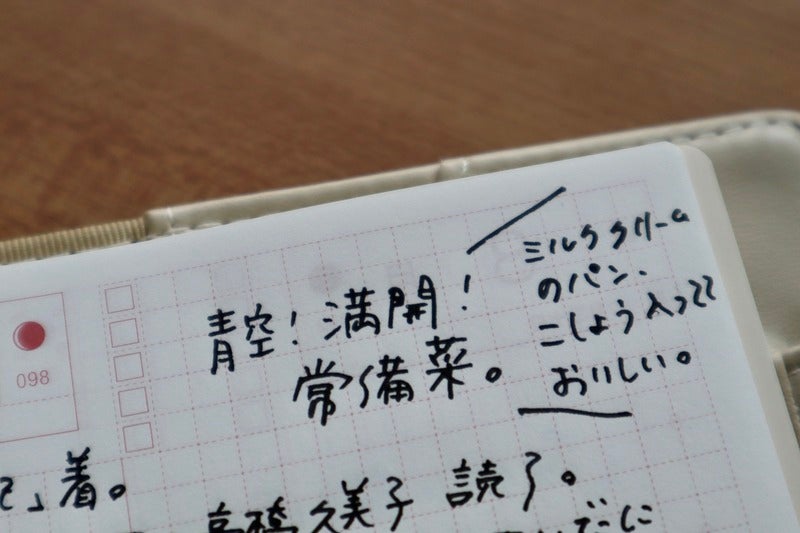 098
青空!満開!
常備菜。
ミルククリーム
のパン、
こしょう入ってて
おいしい。
」着。
高橋久美子 読了。